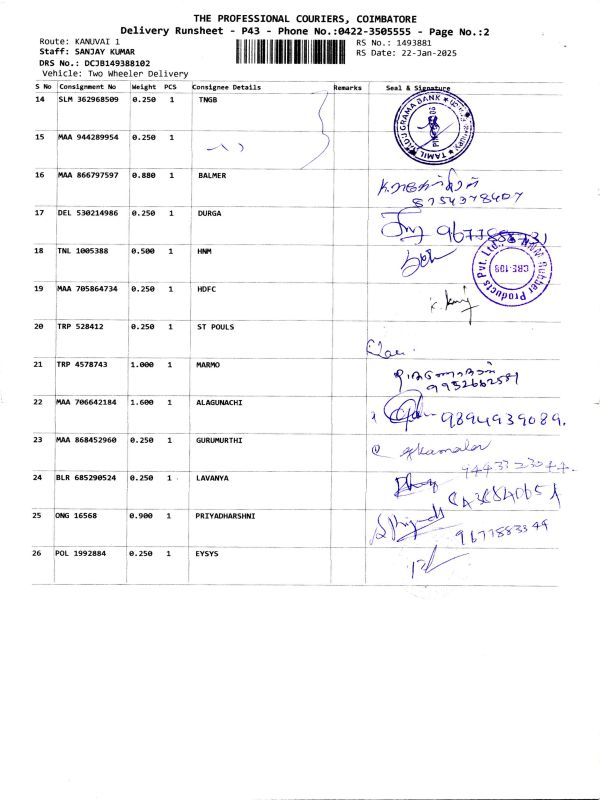 THE PROFESSIONAL COURIERS, COIMBATORE
Delivery Runsheet - P43 - Phone No.:0422-3505555 - Page No.:2
Route: KANUVAI 1 RS No.: 1493881
Staff: SANJAY KUMAR RS Date: 22-Jan-2025
DRS No.: DCJB149388102
Vehicle: Two Wheeler Delivery
S No Consignment No Weight PCS Consignee Details Remarks Seal & Signature
14 SLM 362968509 0.250 1 TNGB
15 MAA 944289954 0.250 1
16 MAA 866797597 0.880 1 BALMER
8754378407
17 DEL 530214986 0.250 1 DURGA
18 TNL 1005388 0.500 1 HNM
19 MAA 705864734 0.250 1 HDFC
20 TRP 528412 0.250 1 ST POULS
21 TRP 4578743 1.000 1 MARMO
9952662581
22 MAA 706642184 1.600 1 ALAGUNACHI
9894939089.
23 MAA 868452960 0.250 1 GURUMURTHI
24 BLR 685290524 0.250 1 LAVANYA
25 ONG 16568 0.900 1 PRIYADHARSHNI
9677883349
26 POL 1992884 0.250 1 EYSYS